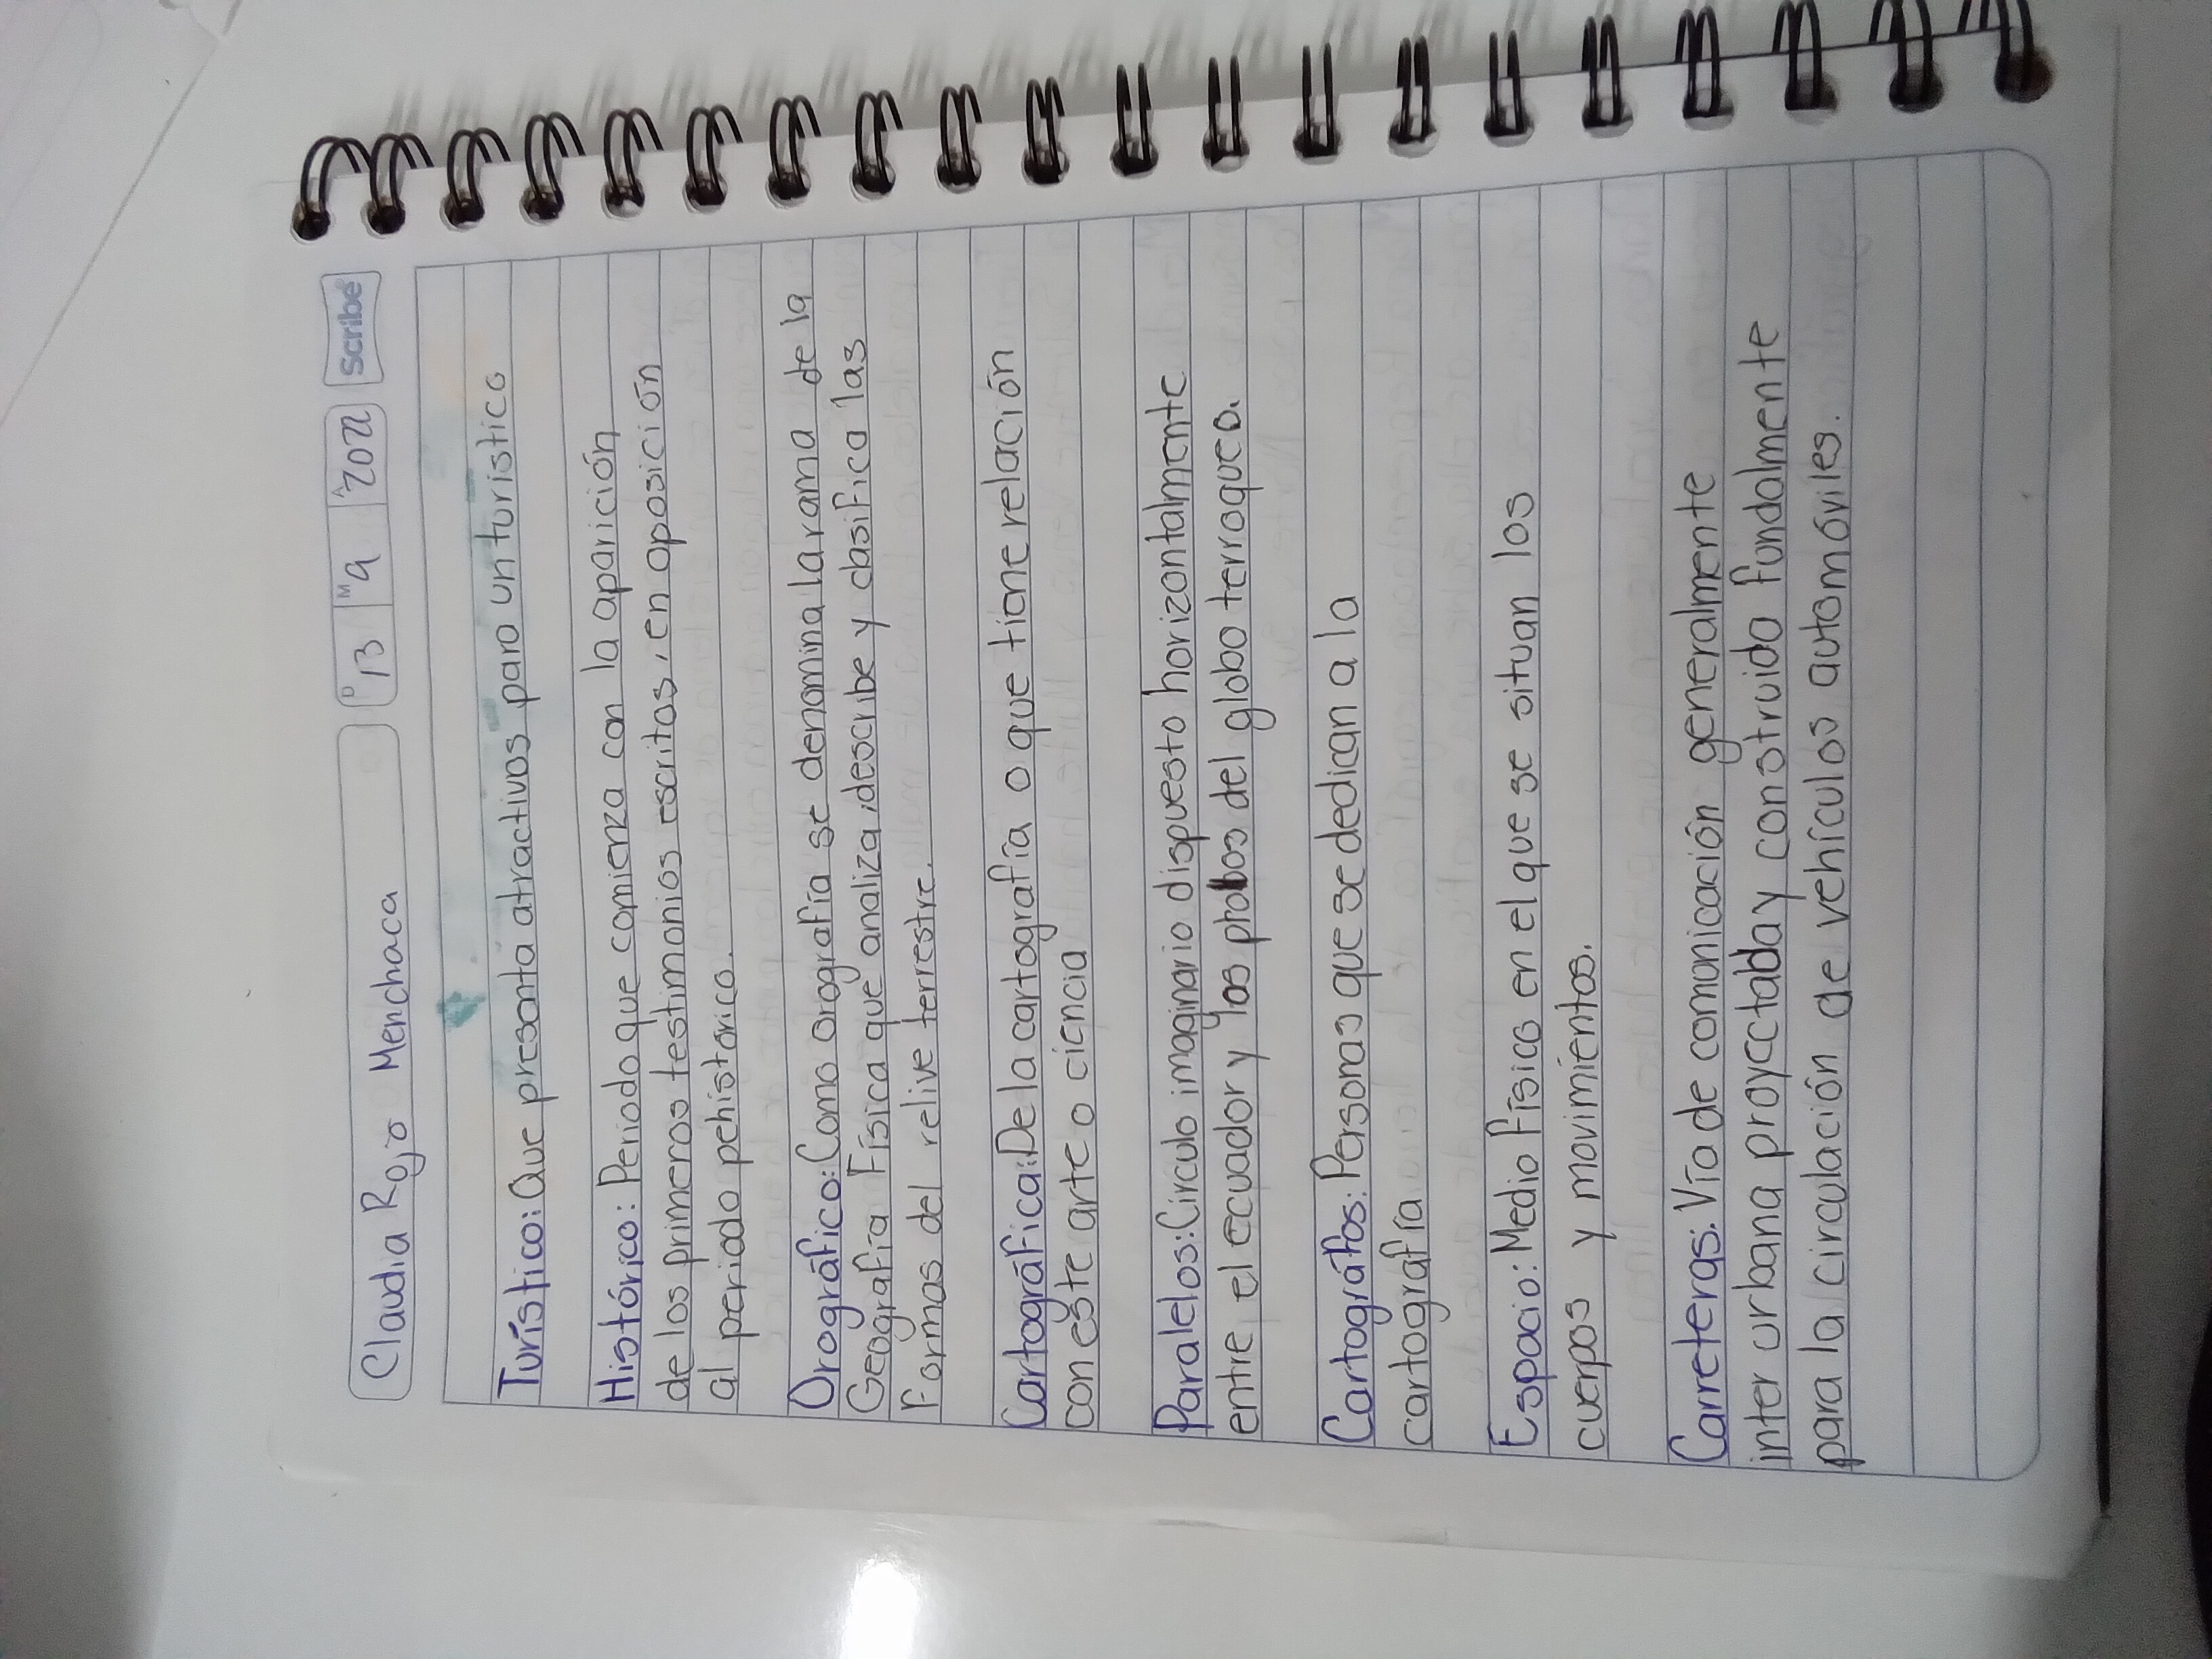 Claudia Rojo Menchaca
D 13 M 9 A 2022 scribe
Turístico: Que presenta atractivos para un turistico
Histórico: Periodo que comienza con la aparición
de los primeros testimonios escritos, en oposición
al periodo pehistorico.
Orográfico: Como orografía se denomina la rama de la
Geografía Física que analiza, describe y clasifica las
Formas del relive terrestre.
Cartográfica: De la cartografía o que tiene relación
con este arte o ciencia
Paralelos: Circulo imaginario dispuesto horizontalmente
entre el ecuador y los del globo terraqueo.
Cartográfos: Personas que se dedican a la
cartografía
Espacio: Medio Físico en el que se situan los
cuerpos y movimientos.
Carreteras: Vía de comonicación generalmente
inter urbana proyectada y construida fundalmente
para la circulación de vehículos automóviles.